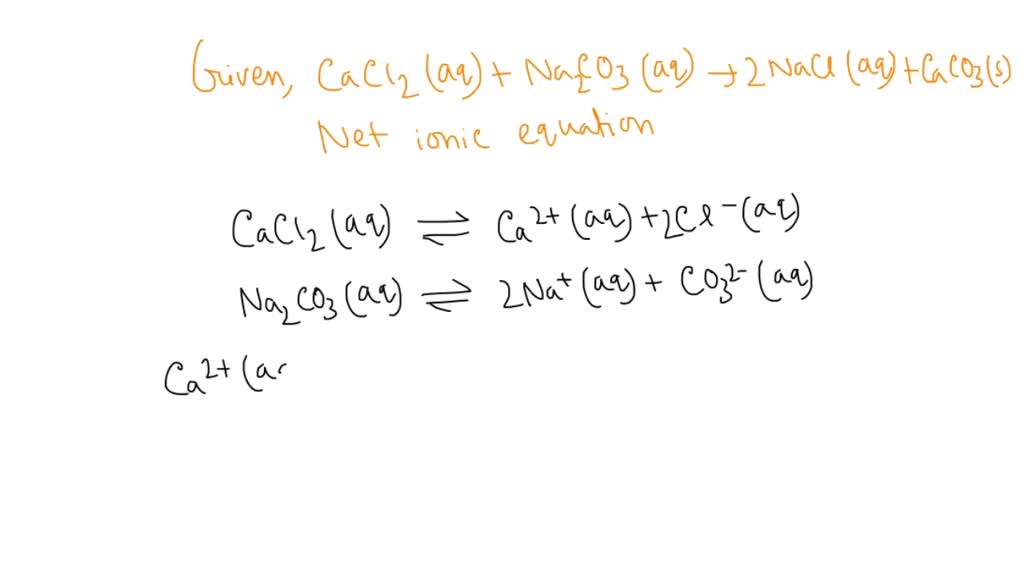 Given, CaCl2 (aq) + Na2CO3 (aq) → 2NaCl (aq) + CaCO3(s)
Net ionic equation
CaCl2 (aq) ⇌ Ca2+ (aq) + 2Cl- (aq)
Na2CO3 (aq) ⇌ 2Na+ (aq) + CO32- (aq)
Ca2+ (a